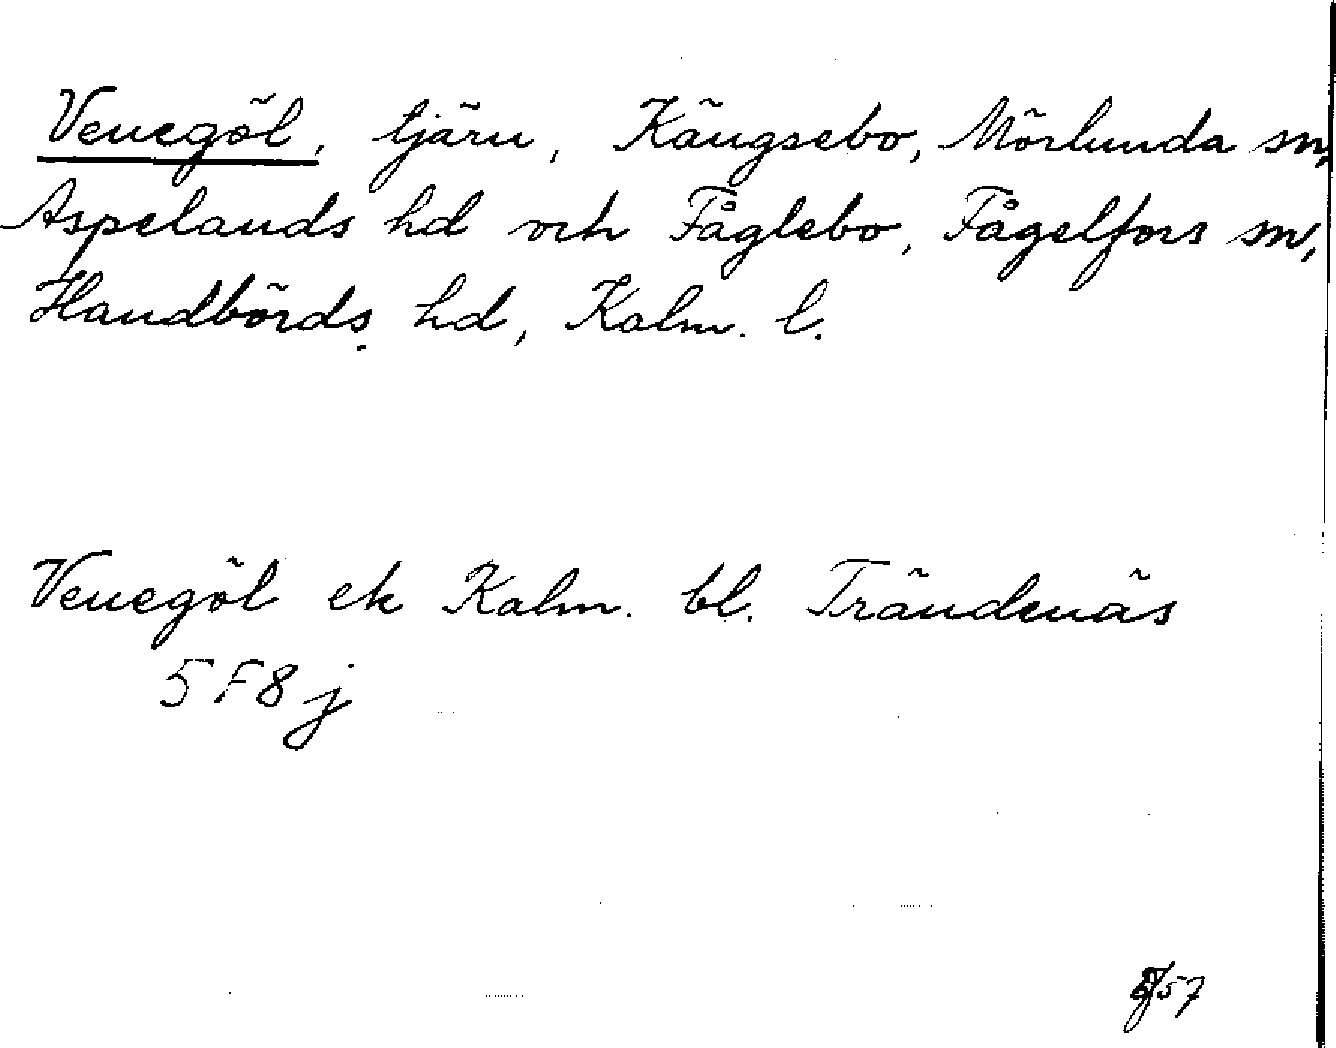 Venegöl, tjärn, Kängsebo, Mörlunda sn,
Aspelands hd och Fåglebo, Fågelfors sn,
Handbörds hd, Kalm. l.
Venegöl ek Kalm. bl. Trändenäs
5F8j
57